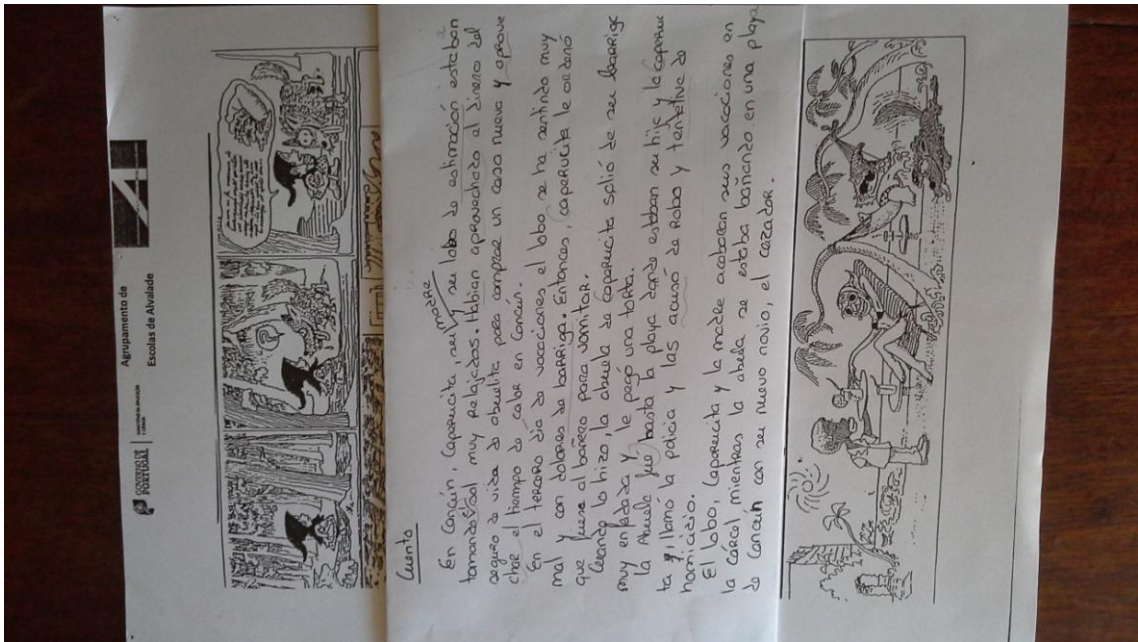 GOVERNO DE
PORTUGAL
Agrupamento de
Escolas de Alvalade
Cuento
En Cancún, Caperucita, su madre y su lobo de estimación estaban
tomando el sol muy relajados. Habian aprovechado el dinero del
seguro de vida de abuelita para comprar un caso nuevo y aprove
char el tiempo de calor en Cancún.
En el tercero dia de vacaciones el lobo se ha sentindo muy
mal y con dolores de barriga. Entonces, caperucita le ordenó
que fuese al bañero para vomitar.
Cuando lo hizo, la abuela de Caperucita salió de su barriga
muy enfadada y le pegó una torta.
La Abuela fué hasta la playa donde estaban su hija y la Caperuci
ta y llamó la policia y las acusó de Robo y tentativa de
homicidio.
El lobo, Caperucita y la madre acabaran sus vacaciones en
la cárcel mientras la abuela se estaba bañando en una playa
de Cancún con su nuevo novio, el cazador.